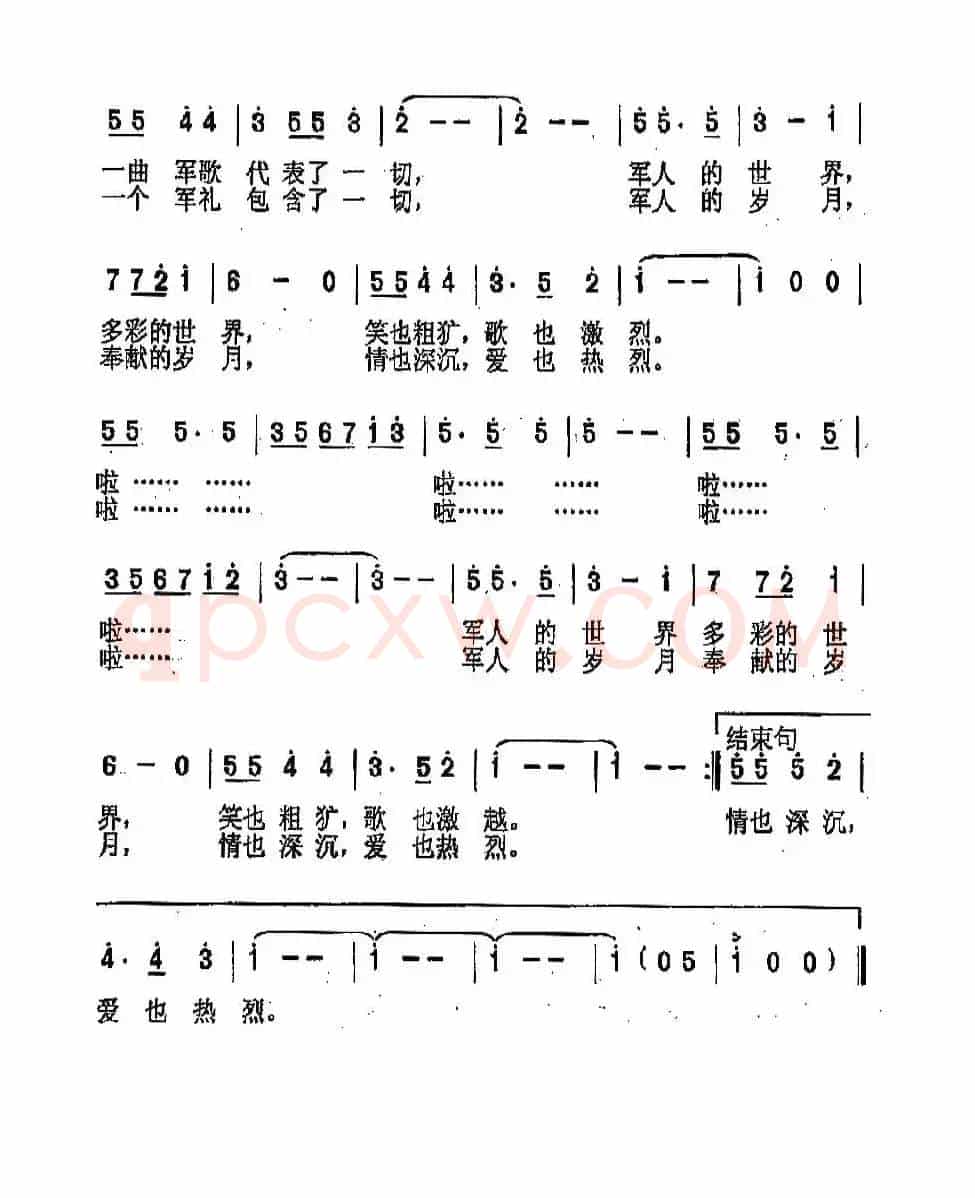 5 5 4 4 | 3 5 5 3 | 2 - - | 2 - - | 5 5· 5 | 3 - 1 |
一曲 军歌 代 表了 一 切, 军人 的 世 界,
一个 军礼 包 含了 一 切, 军人 的 岁 月,
7 7 2 1 | 6 - 0 | 5 5 4 4 | 3· 5 2 | 1 - - | 1 0 0 |
多彩的世 界, 笑也粗犷, 歌 也 激 烈。
奉献的岁 月, 情也深沉, 爱 也 热 烈。
5 5 5· 5 | 3 5 6 7 1 3 | 5· 5 5 | 5 - - | 5 5 5· 5 |
啦…… …… 啦…… …… 啦……
啦…… …… 啦…… …… 啦……
3 5 6 7 1 2 | 3 - - | 3 - - | 5 5· 5 | 3 - 1 | 7 7 2 1 |
啦…… 军人 的 世 界 多 彩的 世
啦…… 军人 的 岁 月 奉 献的 岁
qpcxw.COM
结束句
6 - 0 | 5 5 4 4 | 3· 5 2 | 1 - - | 1 - - :| 5 5 5 2 |
界, 笑也 粗 犷, 歌 也激 越。 情也 深 沉,
月, 情也 深 沉, 爱 也热 烈。
4· 4 3 | 1 - - | 1 - - | 1 - - | 1 (0 5 | 1 0 0) ‖
爱 也 热 烈。